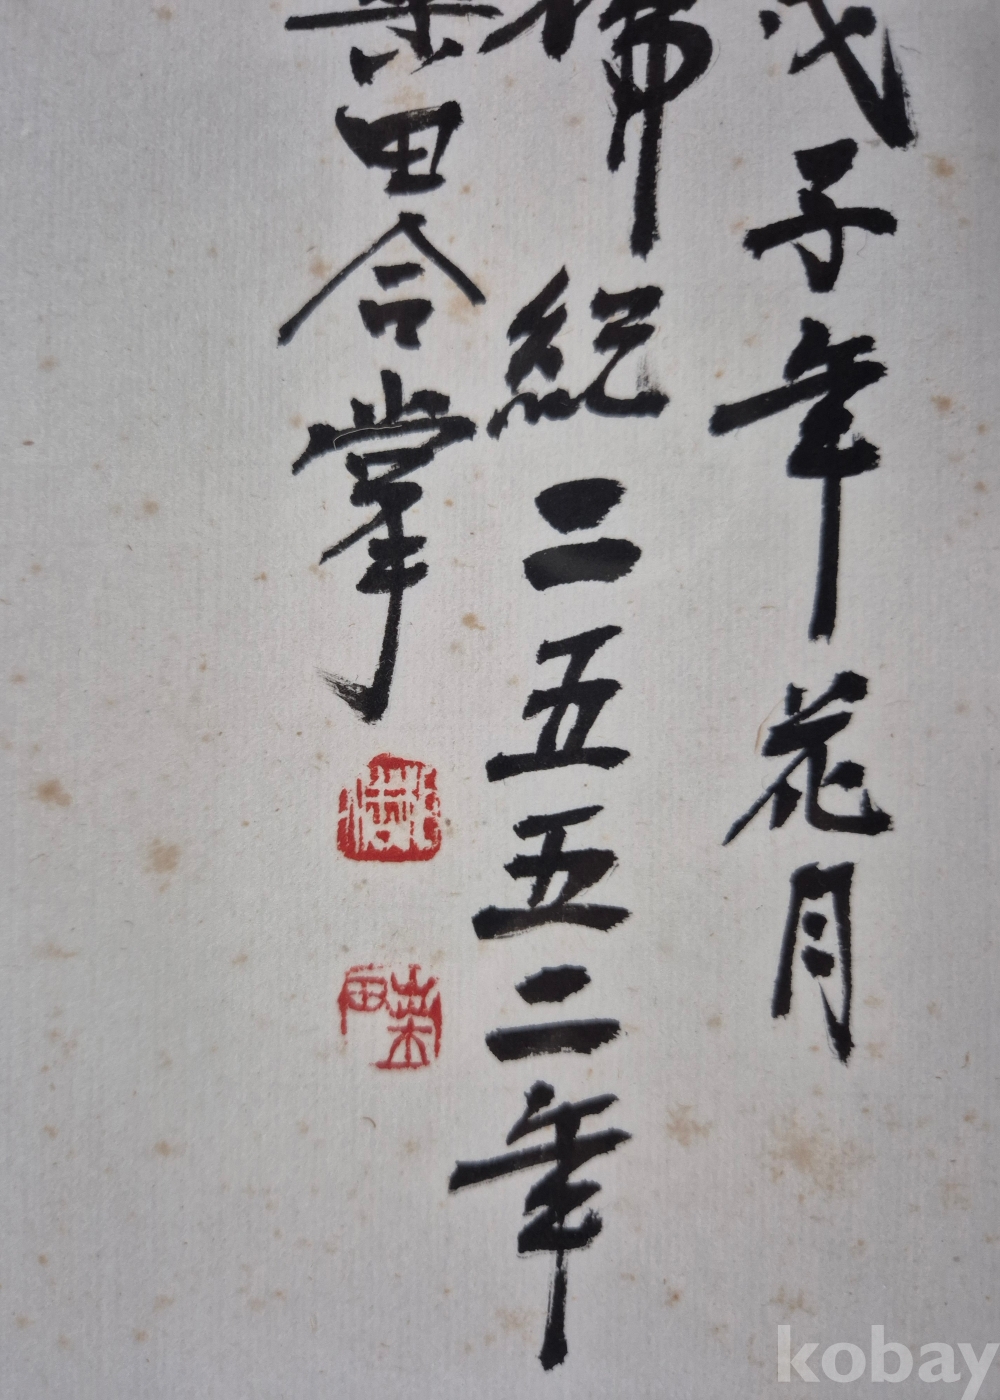 戊子年花月
佛紀二五五二年
業田合掌
kobay